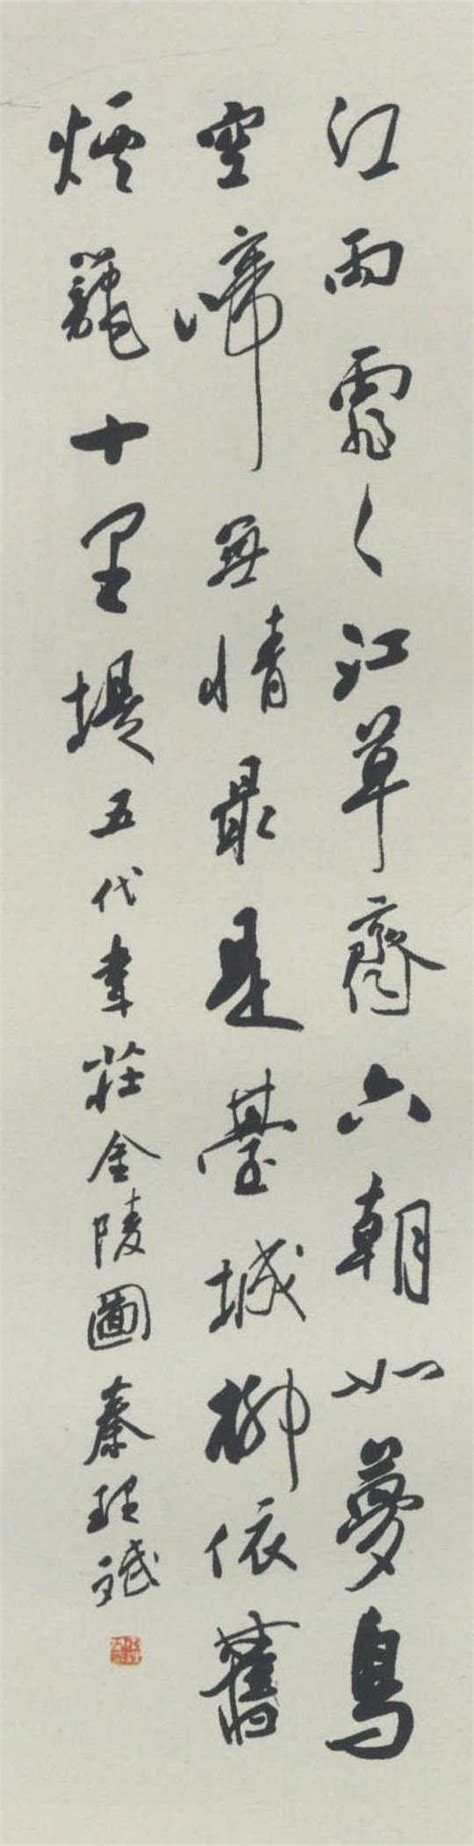 江雨霏々江草齊六朝如夢鳥
空啼無情最是臺城柳依舊
煙籠十里堤五代韋莊金陵圖秦理斌